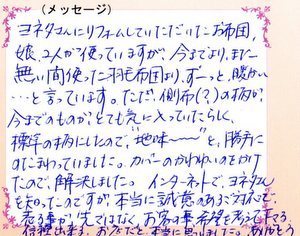 (メッセージ)
ヨネタさんにリフォームしていただいたお布団、
娘、2人が使っていますが、今までより、また
無い間使った羽毛布団より、ずーっと、暖かい
…と言っています。ただ、側布(?)の柄が、
今までのものが、とても気に入っていたらしく、
標準の柄にしたので、"地味〜〜"と、勝手に
のたまわっていました。カバーのかわいいのをかけ
たので、解決しました。インターネットで、ヨネタさん
を知ったのですが、本当に誠意のあるご対応で、
売る事が先ではなく、お客の事希望を考えて下さる
信頼出来る、お店だと、本当に思いました。ありがとう